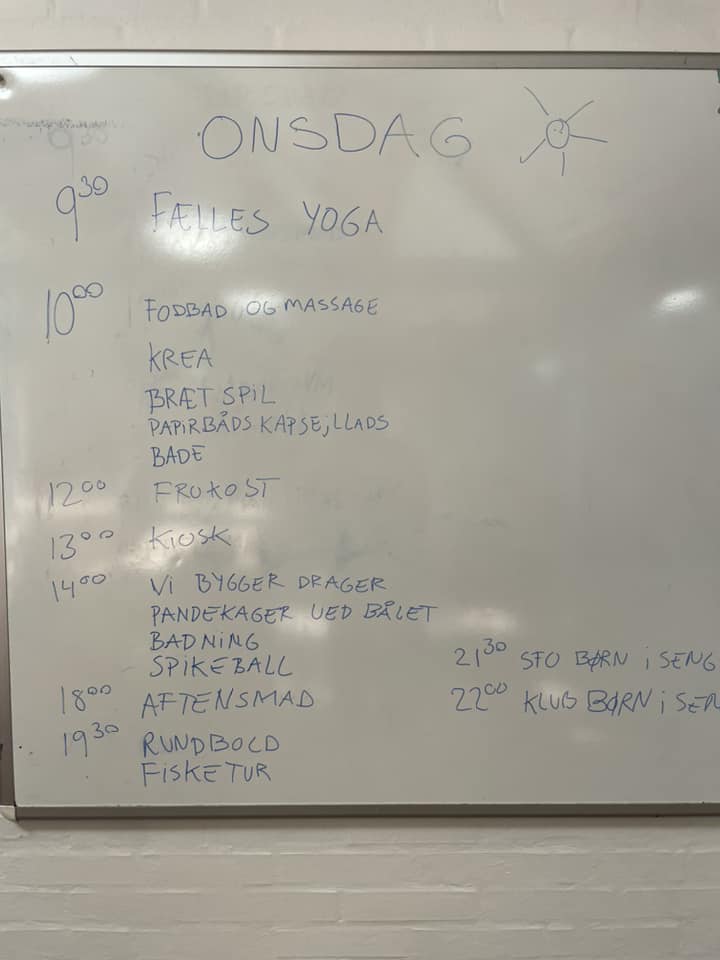 ONSDAG
9³⁰ FÆLLES YOGA
10⁰⁰ FODBAD OG MASSAGE
KREA
BRÆT SPiL
PAPiRBÅDS KAPSEjLLADS
BADE
12⁰⁰ FROKOST
13⁰⁰ KiOSK
14⁰⁰ Vi BYGGER DRAGER
PANDEKAGER VED BÅLET
BADNiNG
SPiKEBALL
18⁰⁰ AFTENSMAD
19³⁰ RUNDBOLD
FiSKETUR
21³⁰ SFO BØRN i SENG
22⁰⁰ KLUB BØRN i SEN